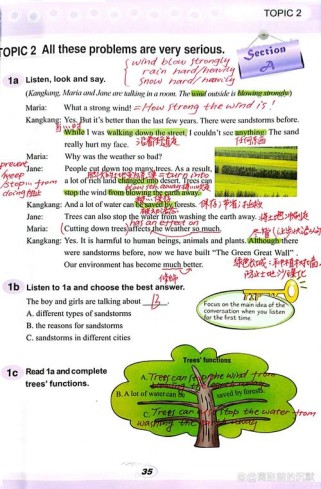 TOPIC 2
TOPIC 2 All these problems are very serious.
Section A
wind blow strongly
rain hard/heavily
snow hard/heavily
1a Listen, look and say.
(Kangkang, Maria and Jane are talking in a room. The wind outside is blowing strongly.)
Maria: What a strong wind! = How strong the wind is!
Kangkang: Yes. But it's better than the last few years. There were sandstorms before.
While I was walking down the street, I couldn't see anything. The sand
really hurt my face. 沿着街道
Maria: Why was the weather so bad?
Jane: People cut down too many trees. As a result,
= turn into
a lot of rich land changed into desert. Trees can
stop the wind from blowing the earth away.
prevent
keep
/stop...from
doing
Kangkang: And a lot of water can be saved by forests.
Jane: Trees can also stop the water from washing the earth away.
has an effect on
Maria: Cutting down trees affects the weather so much.
Kangkang: Yes. It is harmful to human beings, animals and plants. Although there
were sandstorms before, now we have built "The Green Great Wall".
Our environment has become much better.
1b Listen to 1a and choose the best answer.
The boy and girls are talking about B.
A. different types of sandstorms
B. the reasons for sandstorms
C. sandstorms in different cities
Focus on the main idea of the
conversation when you listen
for the first time.
1c Read 1a and complete
trees' functions.
Trees' functions
A. Trees can stop the wind from
B. A lot of water can be saved by forests.
C. Trees can also stop the water from
washing the earth away
35